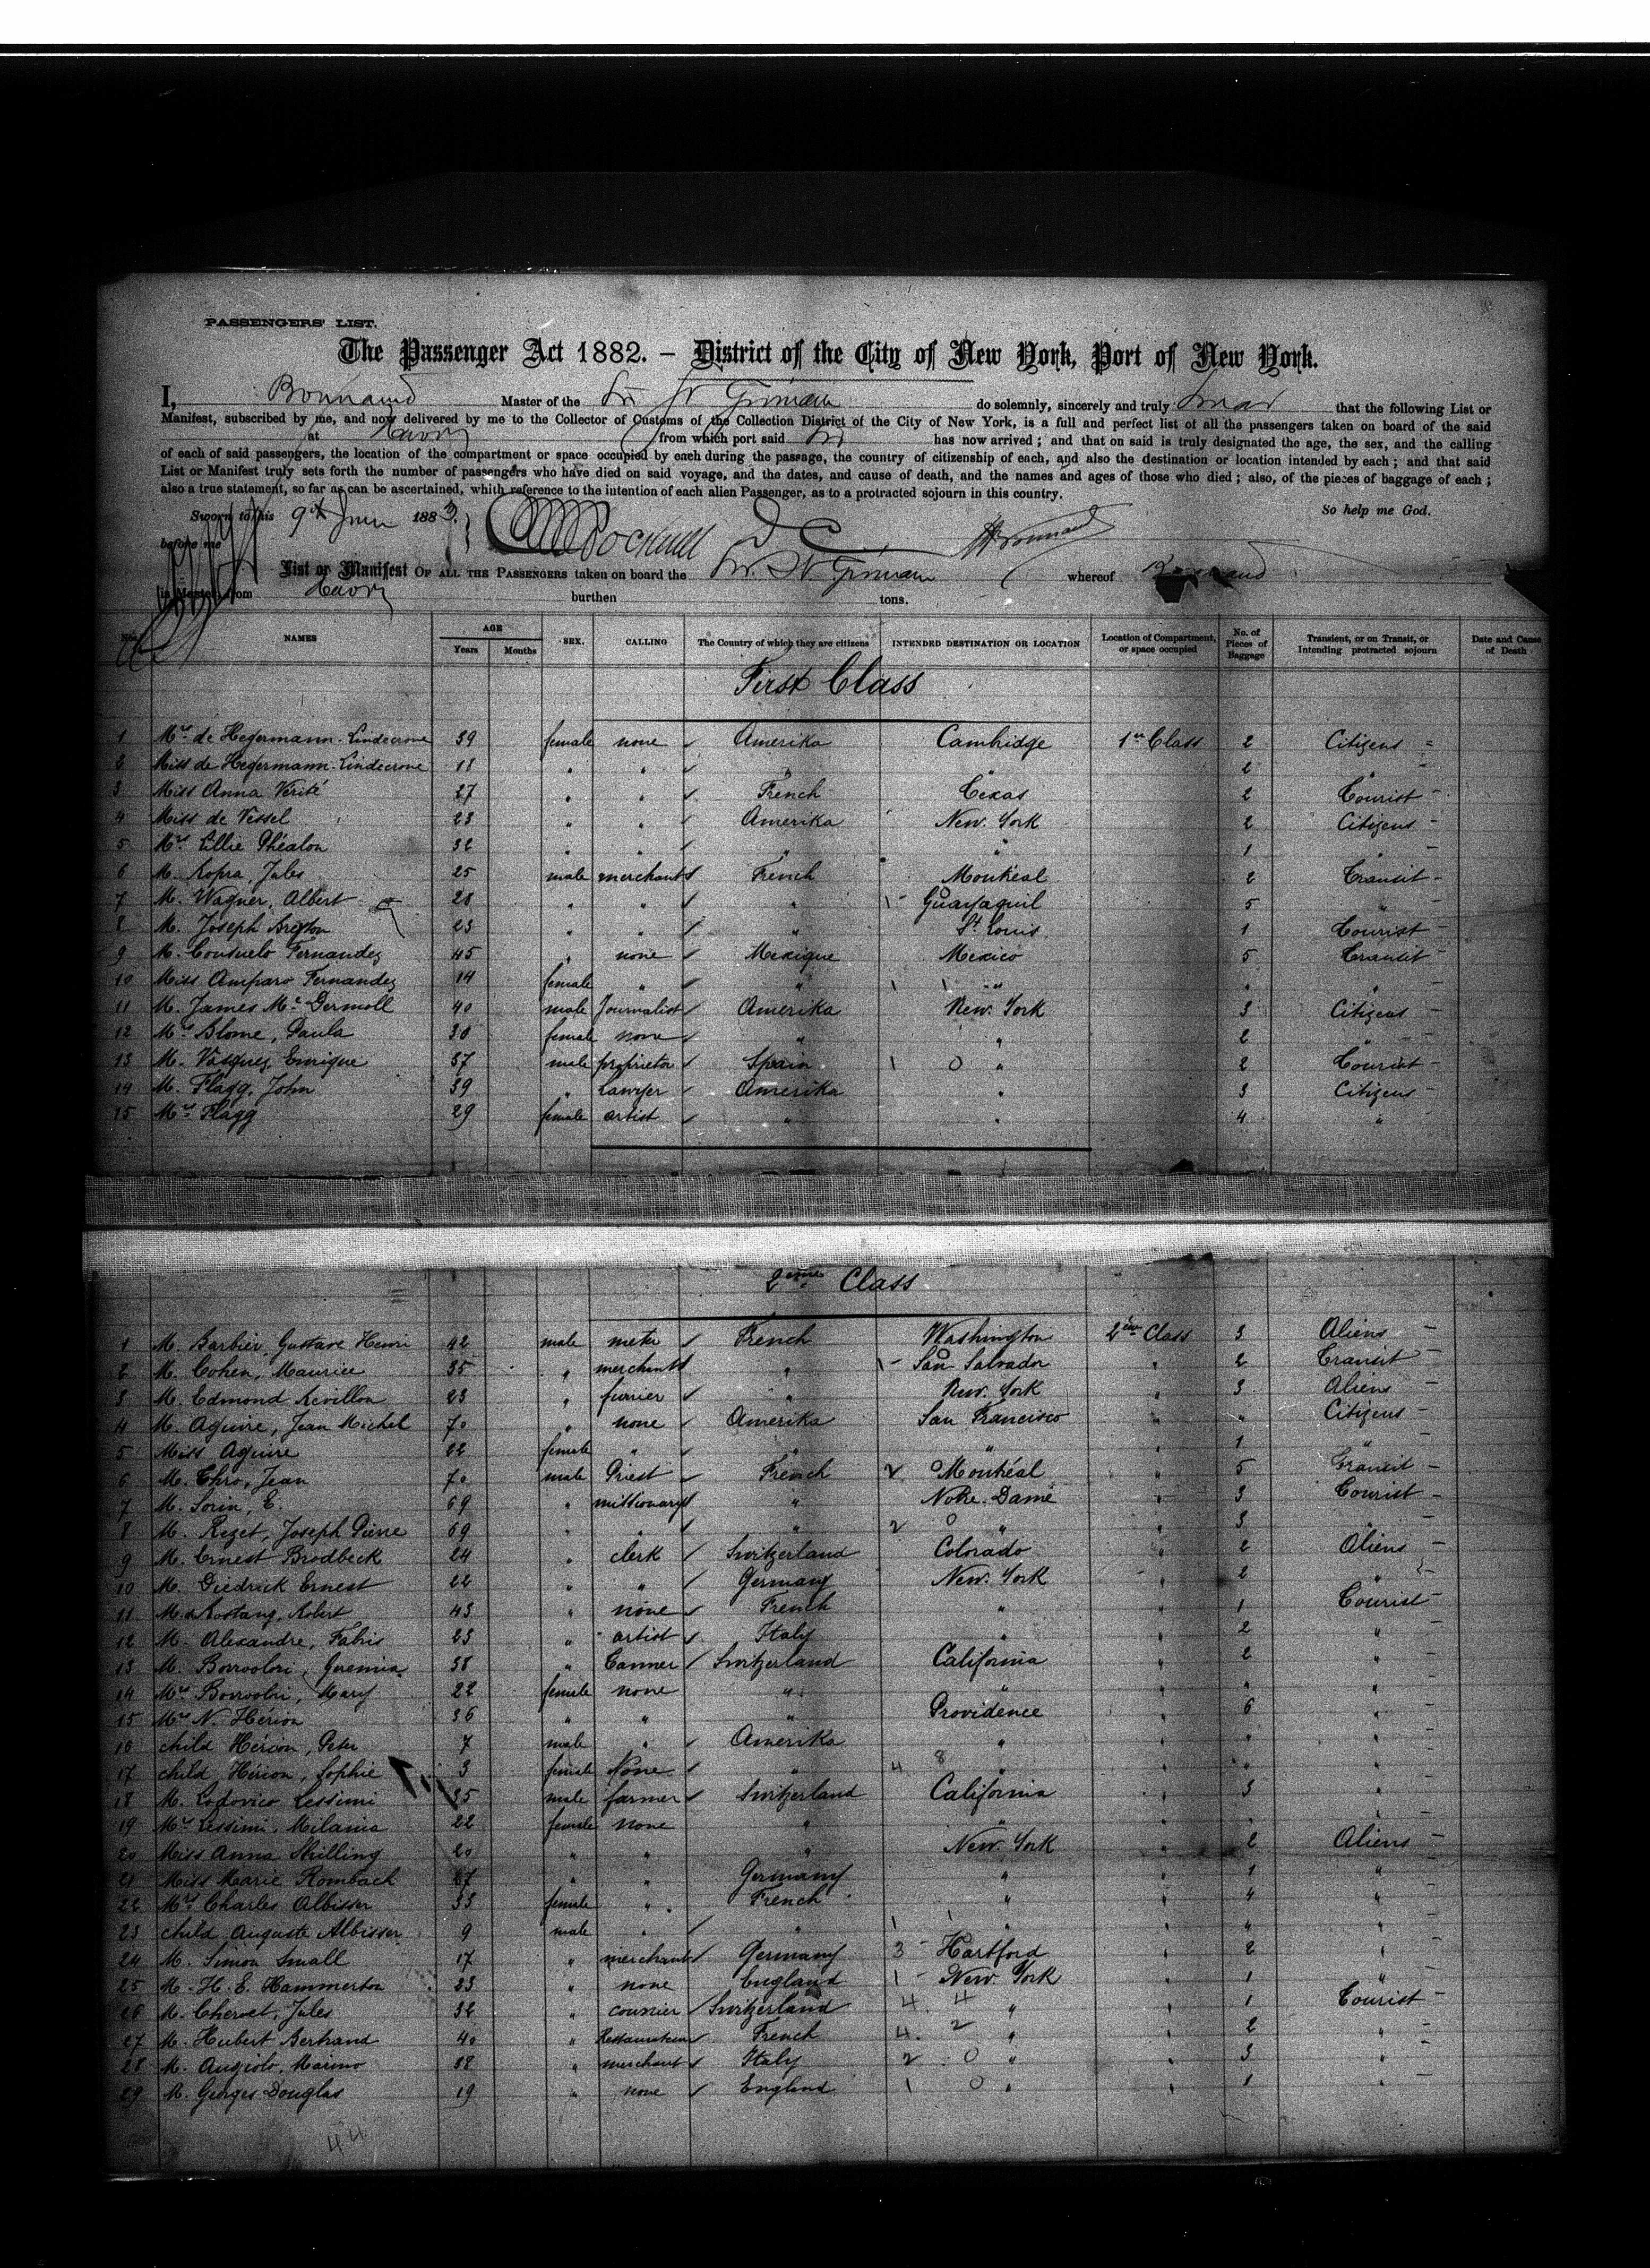 PASSENGERS' LIST.
The Passenger Act 1882. – District of the City of New York, Port of New York.
I, Bonnaud Master of the Str St Germain do solemnly, sincerely and truly swear that the following List or
Manifest, subscribed by me, and now delivered by me to the Collector of Customs of the Collection District of the City of New York, is a full and perfect list of all the passengers taken on board of the said
at Havre from which port said Str has now arrived; and that on said is truly designated the age, the sex, and the calling
of each of said passengers, the location of the compartment or space occupied by each during the passage, the country of citizenship of each, and also the destination or location intended by each; and that said
List or Manifest truly sets forth the number of passengers who have died on said voyage, and the dates, and cause of death, and the names and ages of those who died; also, of the pieces of baggage of each;
also a true statement, so far as can be ascertained, whith reference to the intention of each alien Passenger, as to a protracted sojourn in this country.
So help me God.
Sworn to this 9th June 1883.
before me
List or Manifest OF ALL THE PASSENGERS taken on board the Str. St Germain whereof Bonnaud
is Master, from Havre burthen tons.
Nos. NAMES AGE Years Months SEX. CALLING The Country of which they are citizens INTENDED DESTINATION OR LOCATION Location of Compartment, or space occupied No. of Pieces of Baggage Transient, or on Transit, or Intending protracted sojourn Date and Cause of Death
First Class
1 Mrs de Hegermann-Lindecrone 39 female none Amerika Cambridge 1re Class 2 Citizens
2 Miss de Hegermann-Lindecrone 18 " " " " 2 "
3 Miss Anna Vérité 27 " " French Texas 2 Tourist
4 Miss de Vessel 23 " " Amerika New. York 2 Citizens
5 Mrs Lillie Phealon 32 " " " " 1 "
6 M. Kopra, Jules 25 male merchant French Montréal 2 Transit
7 M. Wagner, Albert 28 " " " 1 Guayaquil 5 "
8 M. Joseph Bretton 23 " " " St Louis 1 Tourist
9 M. Consuelo Fernandez 45 " none Mexique Mexico 5 Transit
10 Miss Amparo Fernandez 14 female " " 1 1 " " "
11 M. James Mc Dermoll 40 male Journalist Amerika New. York 3 Citizens
12 Mrs Blome, Paula 30 female none " " 2 "
13 M. Vasquez, Enrique 37 male proprietor Spain 1 0 " 2 Tourist
14 M. Flagg, John 39 " Lawyer Amerika " 3 Citizens
15 Mrs Flagg 29 female artist " " 4 "
2eme Class
1 M. Barbier, Gustave Henri 42 male French Washington 2eme Class 3 Aliens
2 M. Cohen, Maurice 35 " merchant " 1 San Salvador " 2 Transit
3 M. Edmond Revillon 23 " furrier " New. York " 3 Aliens
4 M. Aguire, Jean Michel 70 " none Amerika San Francisco " " Citizens
5 Miss Aguire 22 female " " " " 1 "
6 M. Thro, Jean 70 male Priest French 2 0 Montréal " 5 Transit
7 M. Sorin, E. 69 " missionary " Notre. Dame " 3 Tourist
8 M. Rezet, Joseph Pierre 69 " " " 2 0 " " 3 "
9 M. Ernest Brodbeck 24 " clerk Switzerland Colorado " 2 Aliens
10 M. Diedrick Ernest 22 " " Germany New. York " 2 "
11 M. Rostang, Robert 43 " none French " " 1 Tourist
12 M. Alexandre, Fabris 23 " artist Italy " " 2 "
13 M. Borroolori, Geremia 38 " Tanner Switzerland California " 2 "
14 Mrs Borroolori, Mary 22 female none " " " " "
15 Mrs N. Hérion 36 " " " Providence " 6 "
16 child Hérion, Peter 7 male " Amerika " " " "
17 child Hérion, Sophie 3 female None " 4 8 " " " "
18 M. Lodovico Lessimi 35 male farmer Switzerland California " 3 "
19 Mrs Lessimi, Milania 22 female none " " " " "
20 Miss Anna Skilling 20 " " " New. York " 2 Aliens
21 Miss Marie Rombach 27 " " Germany " " 1 "
22 Mrs Charles Albisser 33 female " French " " 4 "
23 child Auguste Albisser 9 male " " 1 1 " " " "
24 M. Simon Small 17 " merchant Germany 3 Hartford " 2 "
25 M. H. E. Hammerton 23 " none England 1 New. York " 1 "
26 M. Chervet, Jules 32 " courrier Switzerland 4. 4 " " 1 Tourist
27 M. Hubert Bertrand 40 " Restaurateur French 4. 2 " " 2 "
28 M. Angiolo, Marino 38 " merchant Italy 2 0 " " 3 "
29 M. Georges Douglas 19 " none England 1 0 " " 1 "
44